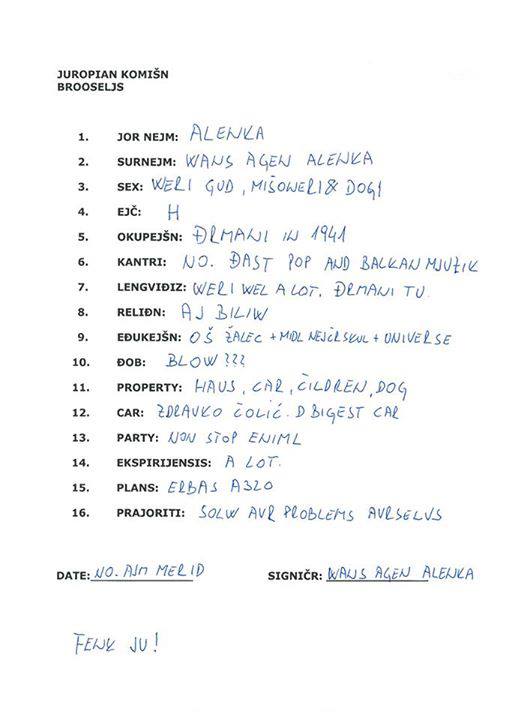 JUROPIAN KOMIŠN
BROOSELJS
1. JOR NEJM: ALENKA
2. SURNEJM: WANS AGEN ALENKA
3. SEX: WERI GUD, MIŠONERI & DOGI
4. EJČ: H
5. OKUPEJŠN: ĐRMANI IN 1941
6. KANTRI: NO. ĐAST POP AND BALKAN MJUZIK
7. LENGVIĐIZ: WERI WEL A LOT. ĐRMANI TU.
8. RELIĐN: AJ BILIW
9. EĐUKEJŠN: OŠ ŽALEC + MIDL NEJČRSKUL + UNIVERSE
10. ĐOB: BLOW???
11. PROPERTY: HAUS, CAR, ČILDREN, DOG
12. CAR: ZDRAVKO ČOLIĆ. D BIGEST CAR
13. PARTY: NON STOP ENIML
14. EKSPIRIJENSIS: A LOT.
15. PLANS: ERBAS A320
16. PRAJORITI: SOLW AVR PROBLEMS AVRSELVS
DATE: NO. AJM MERID SIGNIČR: WANS AGEN ALENKA
FENK JU!